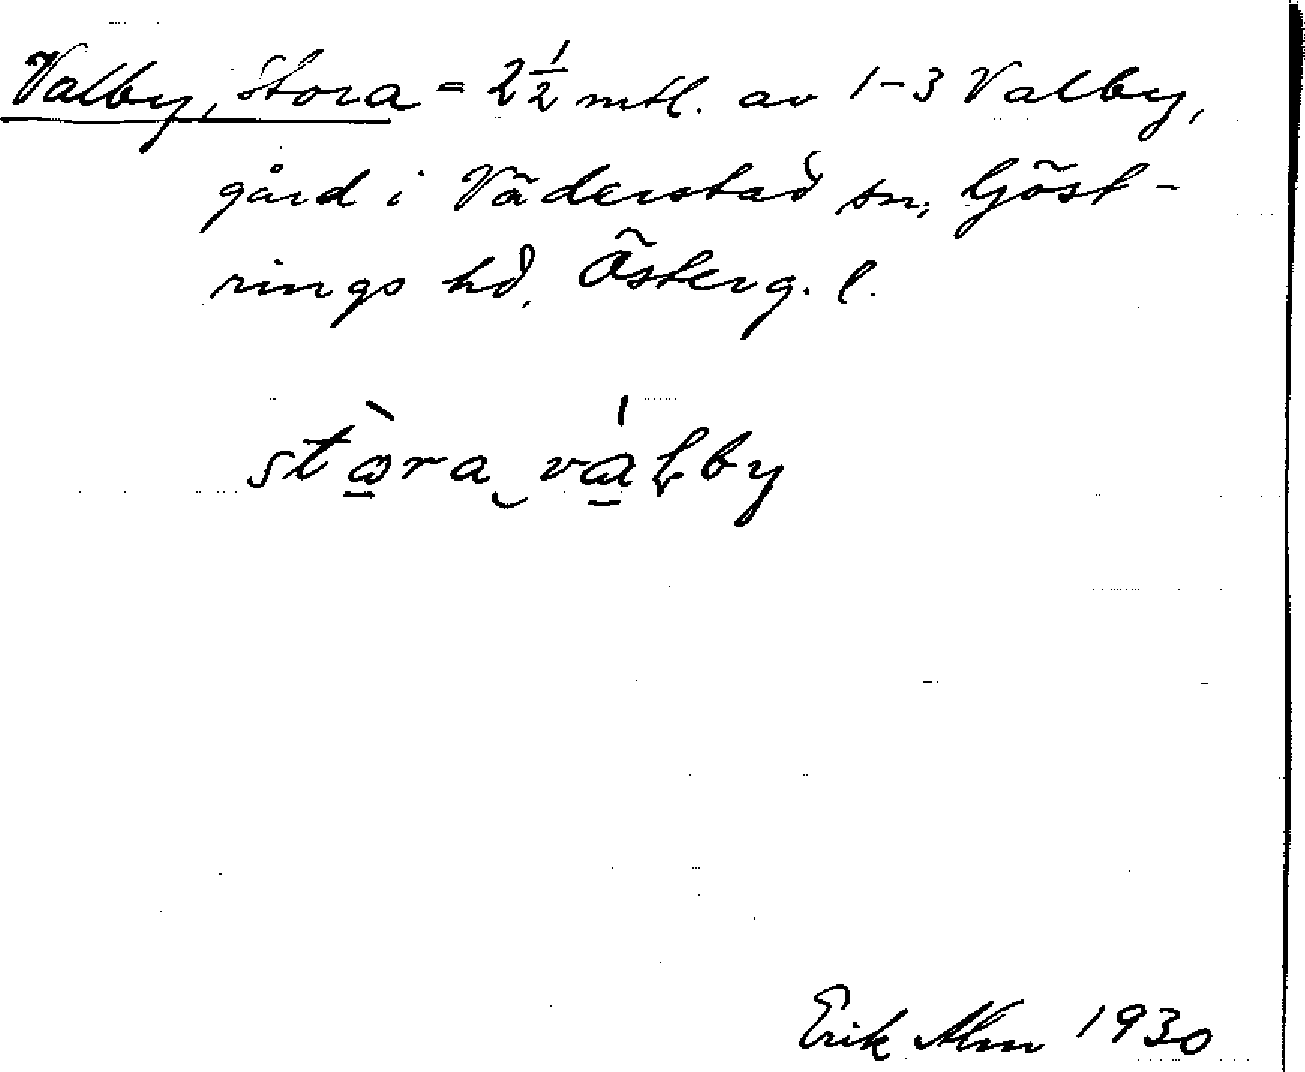 Valby, Stora = 2 1/2 mtl. av 1-3 Valby,
gård i Väderstad sn, Göst-
rings hd, Österg. l.
stòra‿válby
Erik Alm 1930